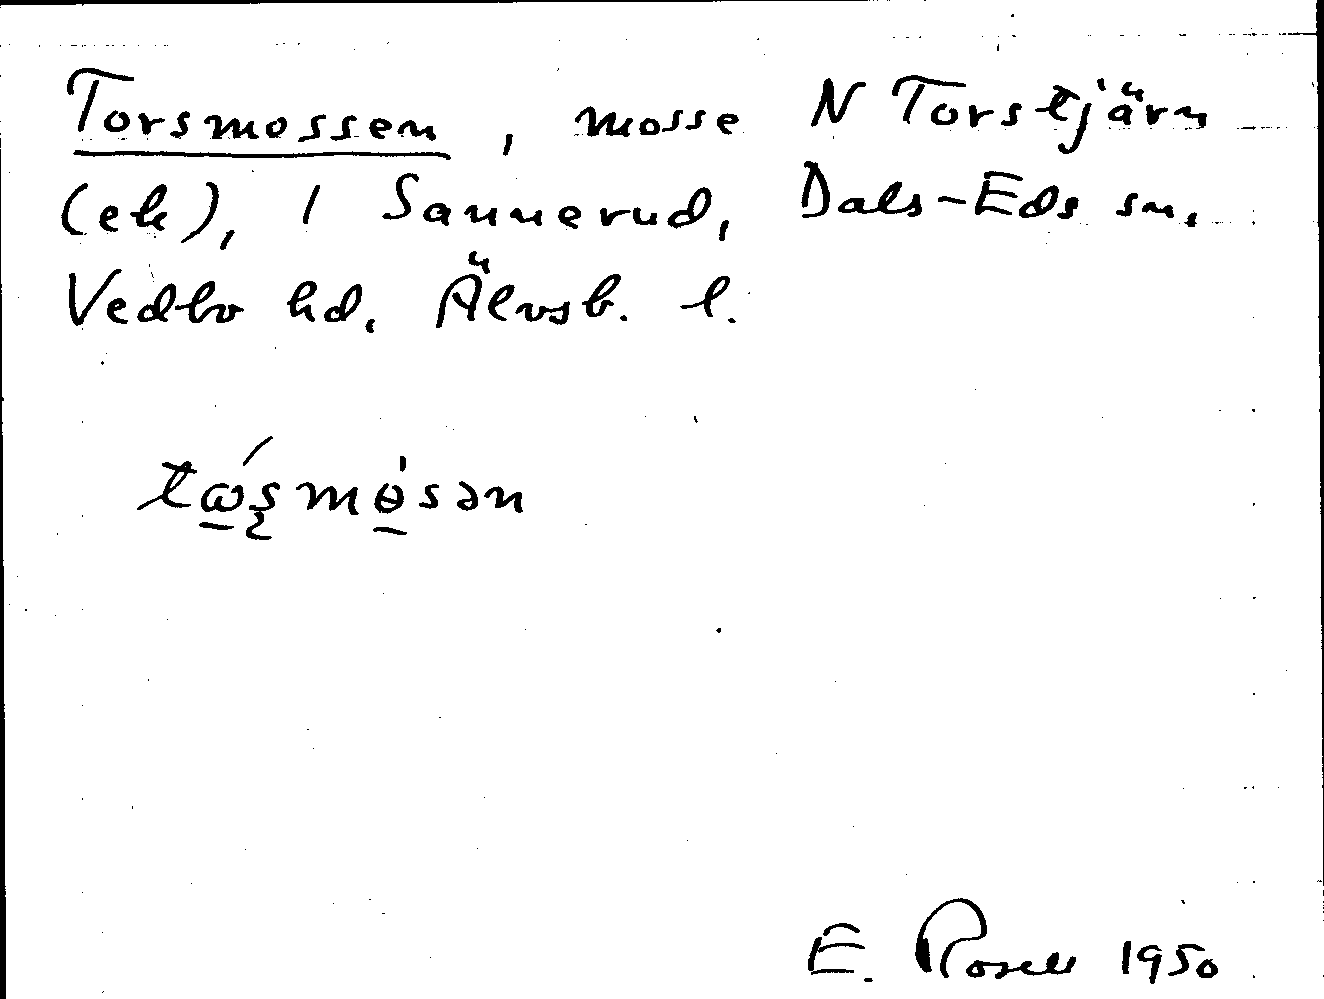 Torsmossen, mosse N Torstjärn
(ek), 1 Sannerud, Dals-Eds sn.
Vedbo hd. Älvsb. l.
E. Rosell 1950